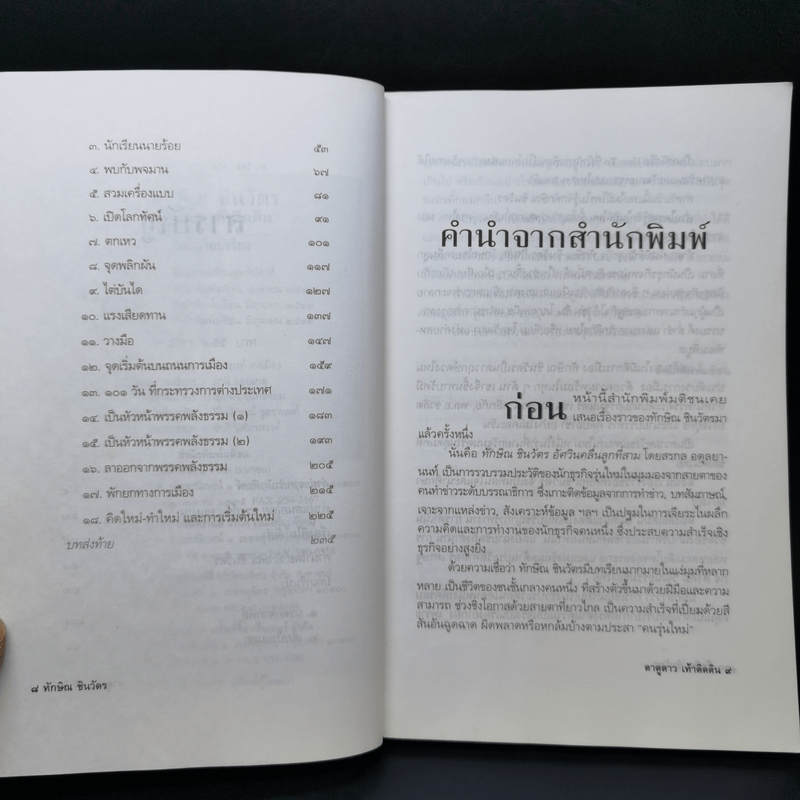 ๓. นักเรียนนายร้อย ๕๓
๔. พบกับพจมาน ๖๗
๕. สวมเครื่องแบบ ๘๑
๖. เปิดโลกทัศน์ ๙๑
๗. ตกเหว ๑๐๑
๘. จุดพลิกผัน ๑๑๗
๙. ไต่บันได ๑๒๗
๑๐. แรงเสียดทาน ๑๓๗
๑๑. วางมือ ๑๔๗
๑๒. จุดเริ่มต้นบนถนนการเมือง ๑๕๙
๑๓. ๑๐๑ วัน ที่กระทรวงการต่างประเทศ ๑๗๑
๑๔. เป็นหัวหน้าพรรคพลังธรรม (๑) ๑๘๓
๑๕. เป็นหัวหน้าพรรคพลังธรรม (๒) ๑๙๓
๑๖. ลาออกจากพรรคพลังธรรม ๒๐๕
๑๗. พักยกทางการเมือง ๒๑๕
๑๘. คิดใหม่-ทำใหม่ และการเริ่มต้นใหม่ ๒๒๕
บทส่งท้าย ๒๓๕
๘ ทักษิณ ชินวัตร
คำนำจากสำนักพิมพ์
ก่อน หน้านี้สำนักพิมพ์มติชนเคย
เสนอเรื่องราวของทักษิณ ชินวัตรมา
แล้วครั้งหนึ่ง
นั่นคือ ทักษิณ ชินวัตร อัศวินคลื่นลูกที่สาม โดยสรกล อดุลยา-
นนท์ เป็นการรวบรวมประวัติของนักธุรกิจรุ่นใหม่ในมุมมองจากสายตาของ
คนทำข่าวระดับบรรณาธิการ ซึ่งเกาะติดข้อมูลจากการทำข่าว, บทสัมภาษณ์,
เจาะจากแหล่งข่าว, สังเคราะห์ข้อมูล ฯลฯ เป็นปฐมในการเจียระไนผลึก
ความคิดและการทำงานของนักธุรกิจคนหนึ่ง ซึ่งประสบความสำเร็จเชิง
ธุรกิจอย่างสูงยิ่ง
ด้วยความเชื่อว่า ทักษิณ ชินวัตรมีบทเรียนมากมายในแง่มุมที่หลาก
หลาย เป็นชีวิตของชนชั้นกลางคนหนึ่ง ที่สร้างตัวขึ้นมาด้วยฝีมือและความ
สามารถ ช่วงชิงโอกาสด้วยสายตาที่ยาวไกล เป็นความสำเร็จที่เปี่ยมด้วยสี
สันอันฉูดฉาด ผิดพลาดหรือหกล้มบ้างตามประสา "คนรุ่นใหม่"
ตาดูดาว เท้าติดดิน ๙